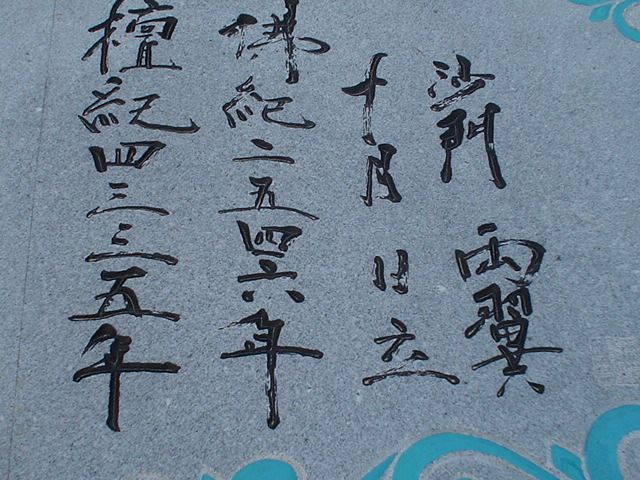 檀紀四三三五年
佛紀二五四六年
十月 日 立
沙門 翼